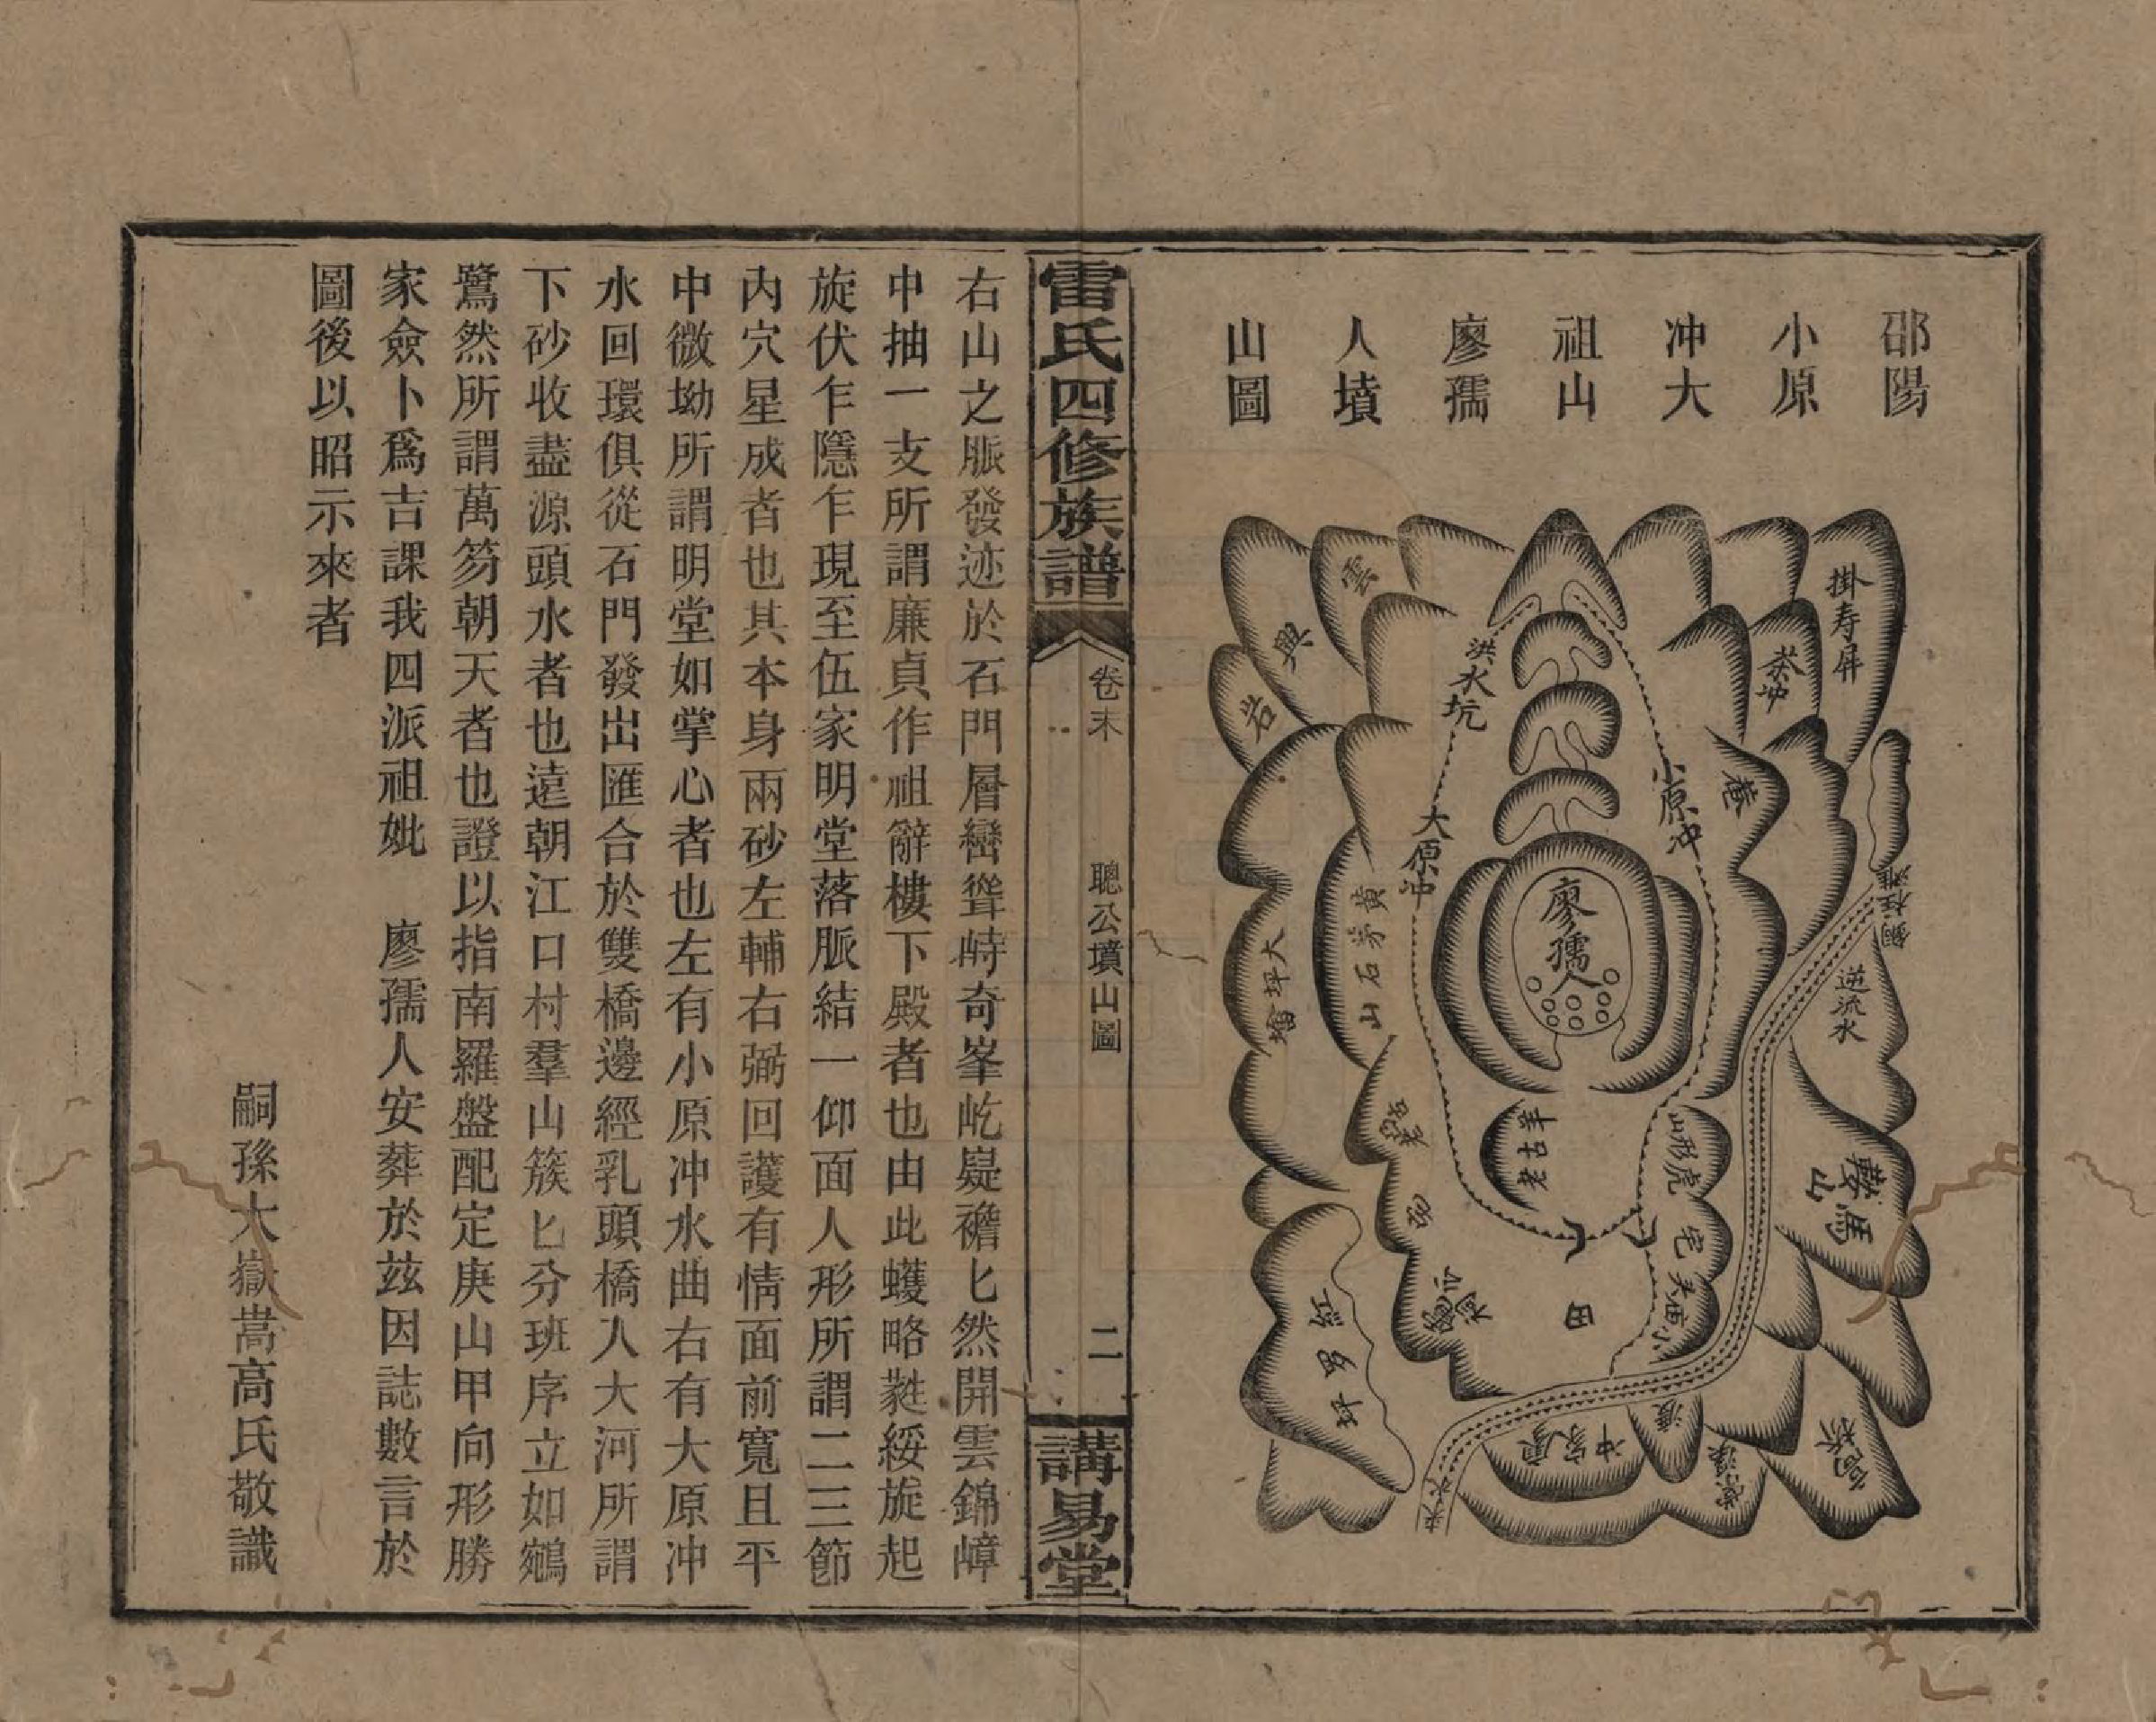 邵陽
小原
冲大
祖山
廖孺
人墳
山圖
掛寿屏
雲
興
岩
洪水坑
小原冲
大原冲
廖孺人
黄茅石山
大坪
逆流水
銅柱灘
老古羊
虎形山
馬鞍山
田
廖家冲
高桥
來水
雷氏四修族譜
卷末
聰公墳山圖
二
講易堂
右山之脈發迹於石門層巒聳峙奇峯屹嶷襜匕然開雲錦嶂
中抽一支所謂廉貞作祖辭樓下殿者也由此蠖略蕤綏旋起
旋伏乍隱乍現至伍家明堂落脈結一仰面人形所謂二三節
內穴星成者也其本身兩砂左輔右弼回護有情面前寬且平
中微坳所謂明堂如掌心者也左有小原冲水曲右有大原冲
水回環俱從石門發出匯合於雙橋邊經乳頭橋人大河所謂
下砂收盡源頭水者也遠朝江口村羣山簇匕分班序立如鵷
鷺然所謂萬笏朝天者也證以指南羅盤配定庚山甲向形勝
家僉卜爲吉課我四派祖妣 廖孺人安葬於兹因誌數言於
圖後以昭示來者
嗣孫大嶽嵩高氏敬識